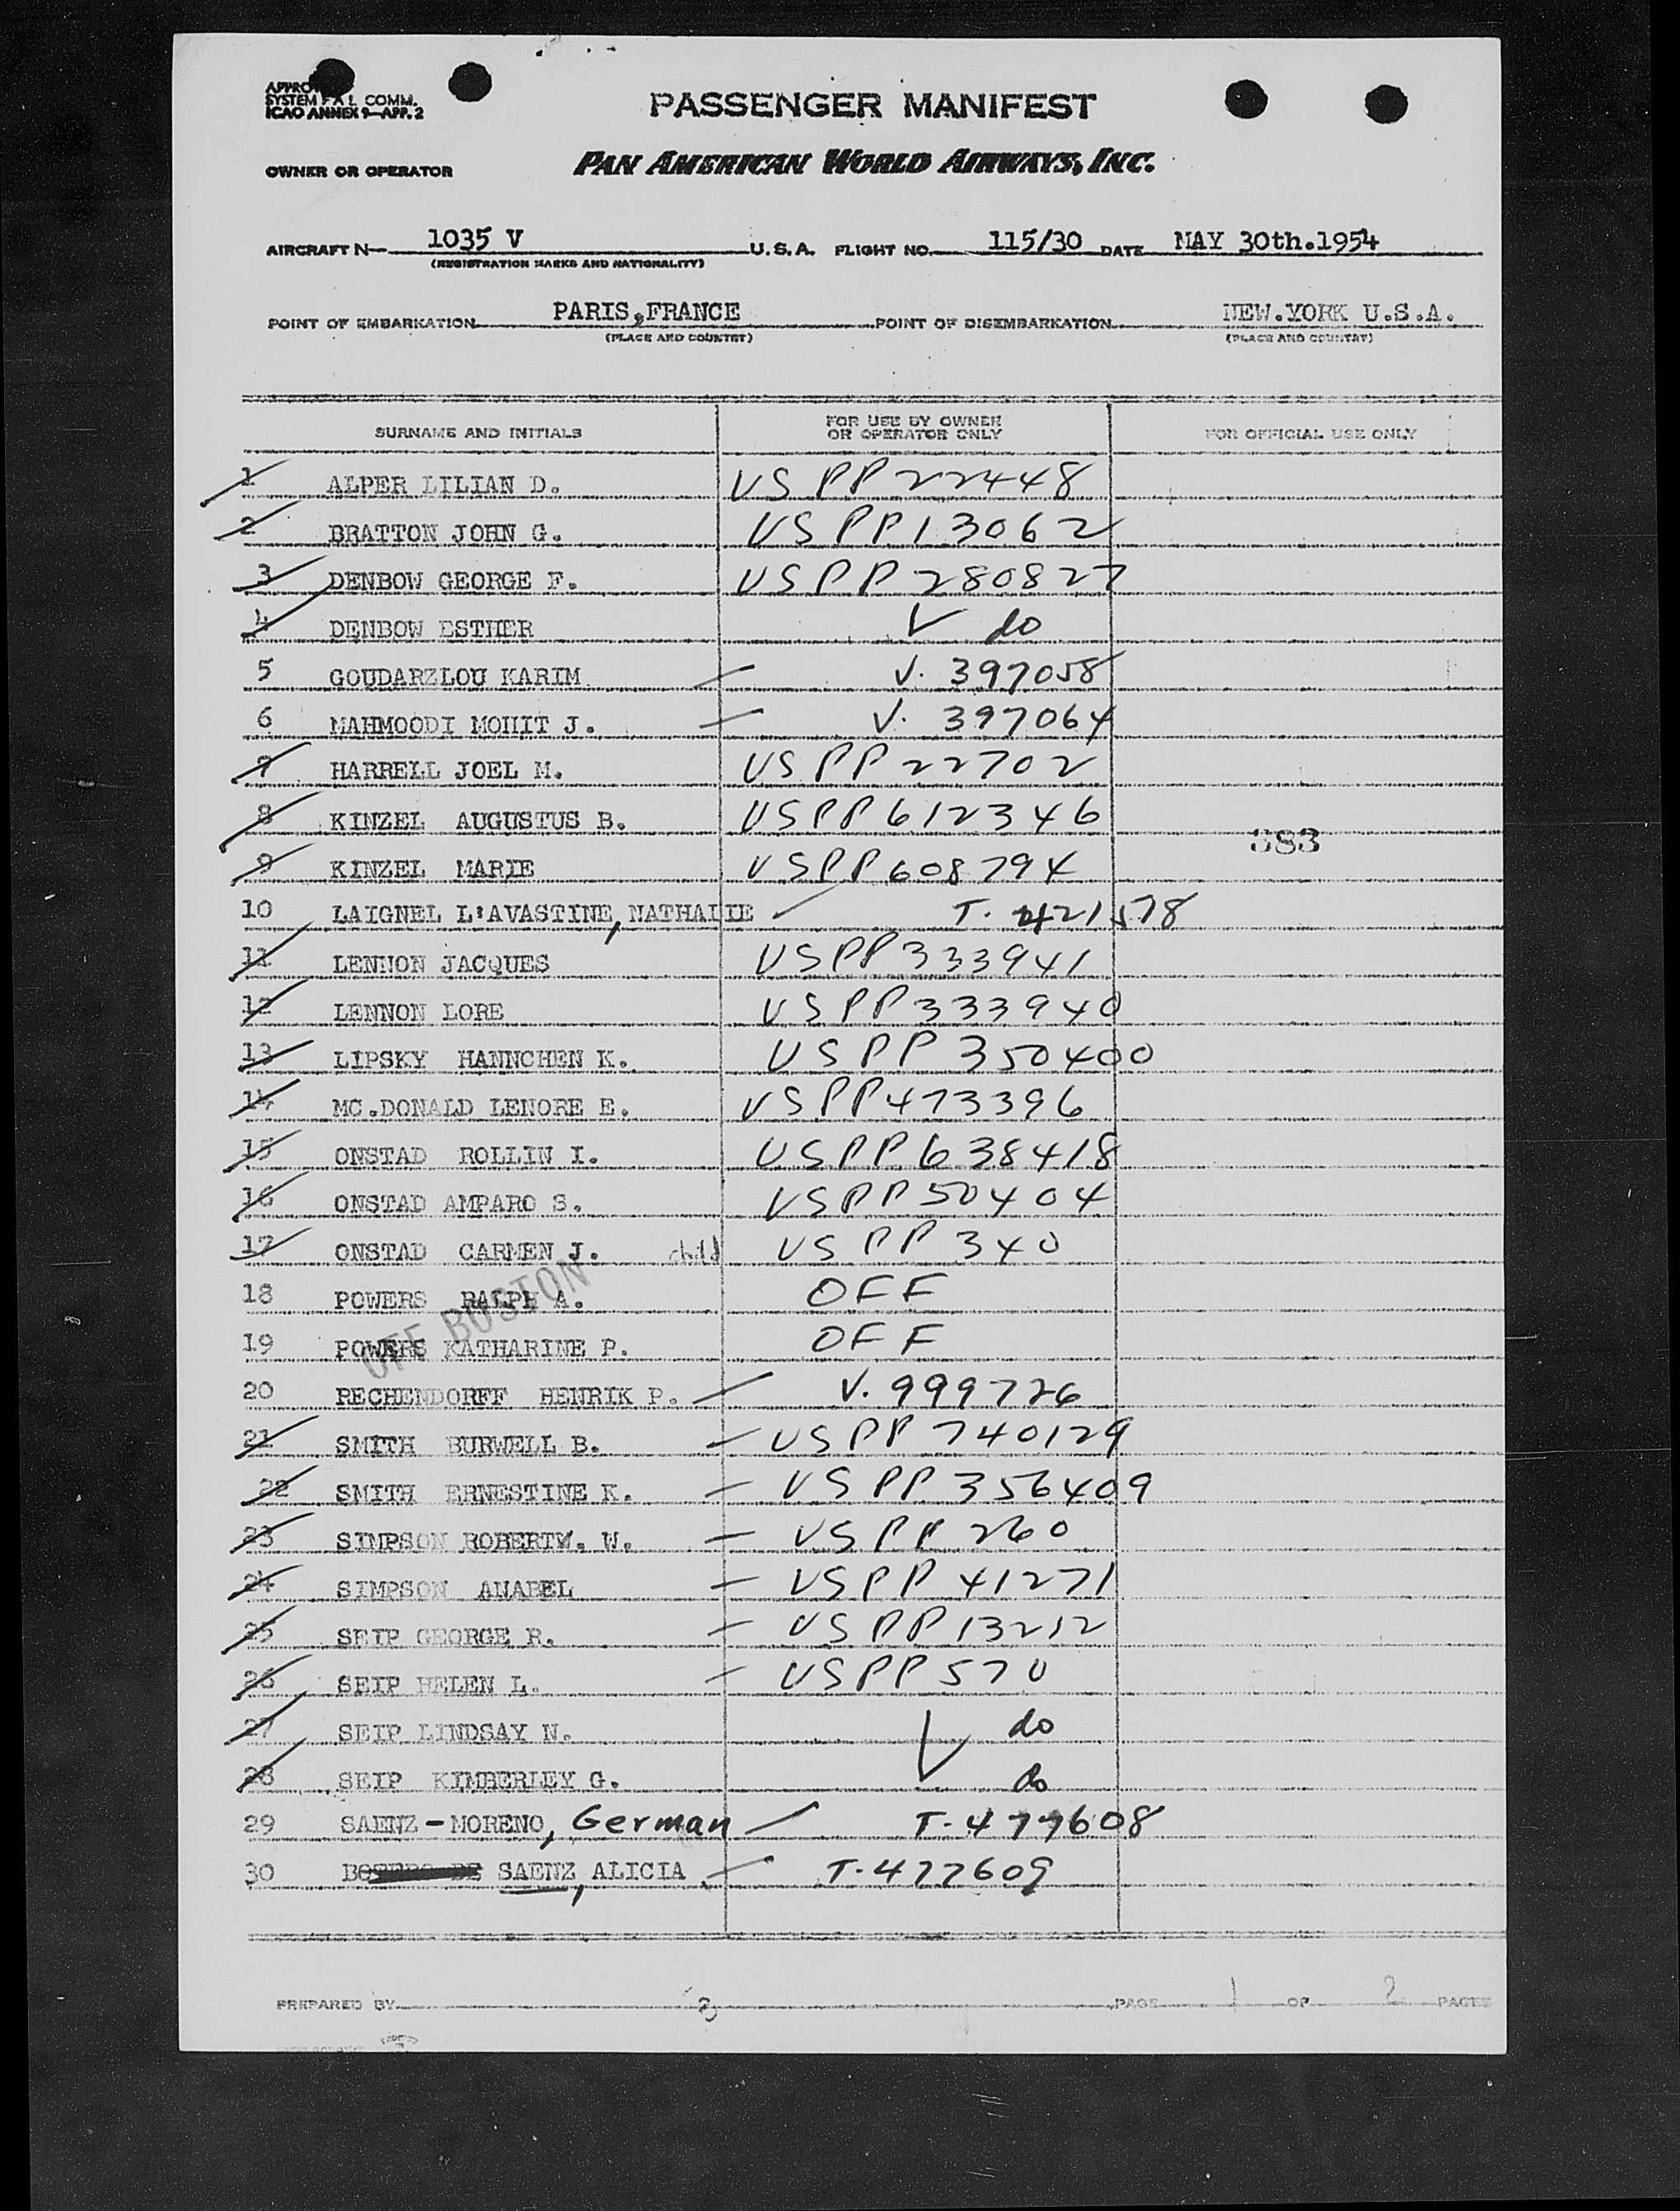 APPRO
SYSTEM FAL COMM.
ICAO ANNEX 9—APP. 2
PASSENGER MANIFEST
OWNER OR OPERATOR PAN AMERICAN WORLD AIRWAYS, INC.
AIRCRAFT N— 1035 V U.S.A. FLIGHT NO. 115/30 DATE MAY 30th.1954
(REGISTRATION MARKS AND NATIONALITY)
POINT OF EMBARKATION PARIS,FRANCE POINT OF DISEMBARKATION NEW.YORK U.S.A.
(PLACE AND COUNTRY) (PLACE AND COUNTRY)
SURNAME AND INITIALS FOR USE BY OWNER OR OPERATOR ONLY FOR OFFICIAL USE ONLY
1 ALPER LILIAN D. USPP22448
2 BRATTON JOHN G. USPP13062
3 DENBOW GEORGE F. USPP280827
4 DENBOW ESTHER do
5 GOUDARZLOU KARIM V. 397058
6 MAHMOODI MOHIT J. V. 397064
7 HARRELL JOEL M. USPP22702
8 KINZEL AUGUSTUS B. USPP612346
383
9 KINZEL MARIE USPP608794
10 LAIGNEL L'AVASTINE, NATHALIE T. 421578
11 LENNON JACQUES USPP333941
12 LENNON LORE USPP333940
13 LIPSKY HANNCHEN K. USPP350400
14 MC.DONALD LENORE E. USPP473396
15 ONSTAD ROLLIN I. USPP638418
16 ONSTAD AMPARO S. USPP50404
17 ONSTAD CARMEN J. child USPP340
18 POWERS RALPH A. OFF
OFF BOSTON
19 POWERS KATHARINE P. OFF
20 RECHENDORFF HENRIK P. V. 999726
21 SMITH BURWELL B. USPP740129
22 SMITH ERNESTINE K. USPP356409
23 SIMPSON ROBERTW. W. USPP260
24 SIMPSON ANABEL USPP41271
25 SEIP GEORGE R. USPP13212
26 SEIP HELEN L. USPP570
27 SEIP LINDSAY N. do
28 SEIP KIMBERLEY G. do
29 SAENZ-MORENO, German T-477608
30 SAENZ, ALICIA T-477609
PREPARED BY PAGE 1 OF 2 PAGES